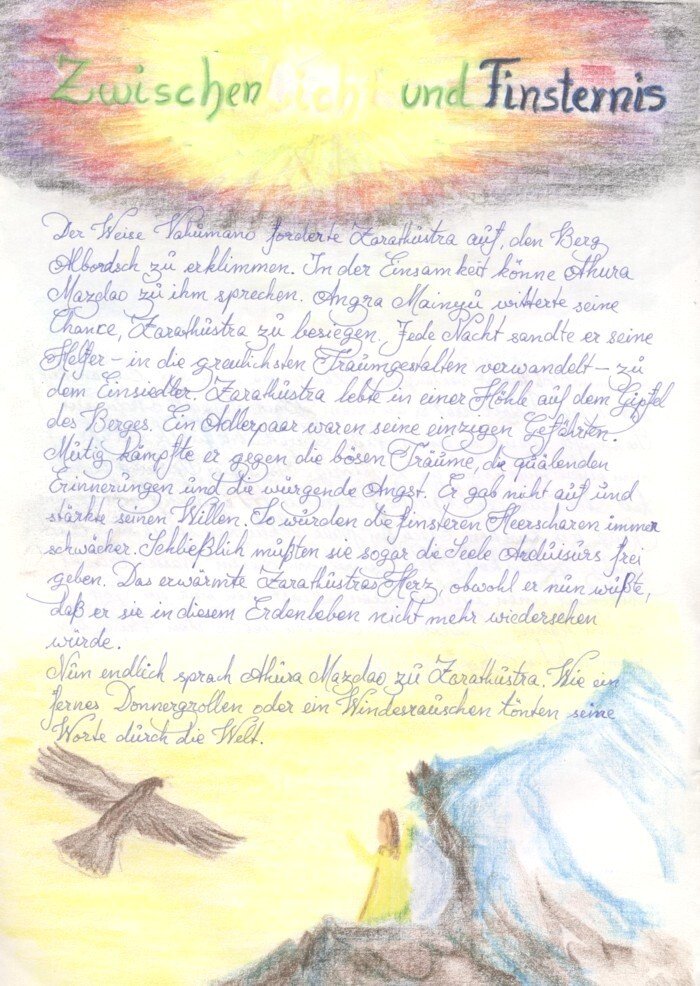 Zwischen Licht und Finsternis
Der Weise Vahumano forderte Zarathustra auf, den Berg
Albordsch zu erklimmen. In der Einsamkeit könne Ahura
Mazdao zu ihm sprechen. Angra Mainyu witterte seine
Chance, Zarathustra zu besiegen. Jede Nacht sandte er seine
Helfer – in die greulichsten Traumgestalten verwandelt – zu
dem Einsiedler. Zarathustra lebte in einer Höhle auf dem Gipfel
des Berges. Ein Adlerpaar waren seine einzigen Gefährten.
Mutig kämpfte er gegen die bösen Träume, die quälenden
Erinnerungen und die würgende Angst. Er gab nicht auf und
stärkte seinen Willen. So wurden die finsteren Heerscharen immer
schwächer. Schließlich mußten sie sogar die Seele Arduisurs frei
geben. Das erwärmte Zarathustras Herz, obwohl er nun wußte,
daß er sie in diesem Erdenleben nicht mehr wiedersehen
würde.
Nun endlich sprach Ahura Mazdao zu Zarathustra. Wie ein
fernes Donnergrollen oder ein Windesrauschen tönten seine
Worte durch die Welt.